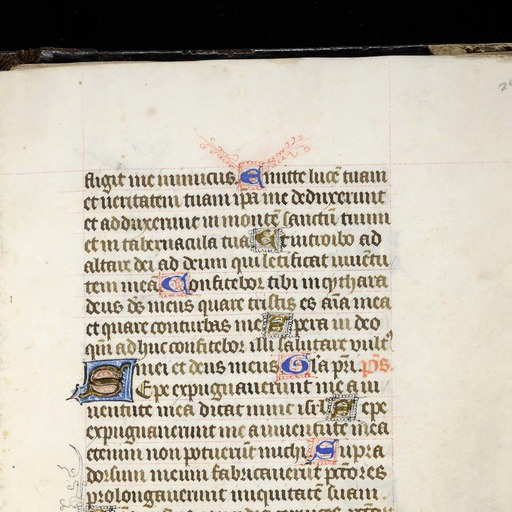 fligit me inimicus. Emitte lucē tuam
et ueritatem tuam ip̄a me deduxerunt
et adduxerunt in montē sanctū tuum
et in tabernacula tua Et introibo ad
altare dei ad deum qui letificat iuuētu
tem meā Confitebor tibi in cythara
deus ds̄ meus quare tristis es aīa mea
et quare conturbas me Spera in deo
qm̄ adhuc confitebor illi salutare vult᾿
mei et deus meus Gl̄a pr̄i. ps̄.
Sepe expugnauerunt me a iu
uentute mea dicat nunc isr̄l Sepe
expugnauerunt me a iuuentute mea
etenim non potuerūt michi Supra
dorsum meum fabricauerūt pctōres
prolongauerunt iniquitatē suam.